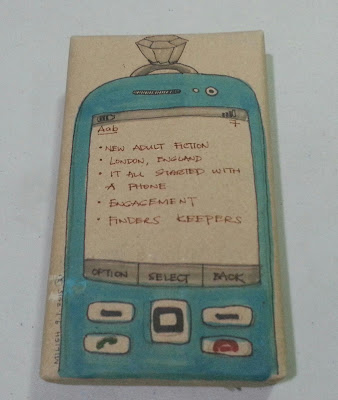 Aab
• NEW ADULT FICTION
• LONDON, ENGLAND
• IT ALL STARTED WITH
A PHONE
• ENGAGEMENT
• FINDERS KEEPERS
OPTION SELECT BACK